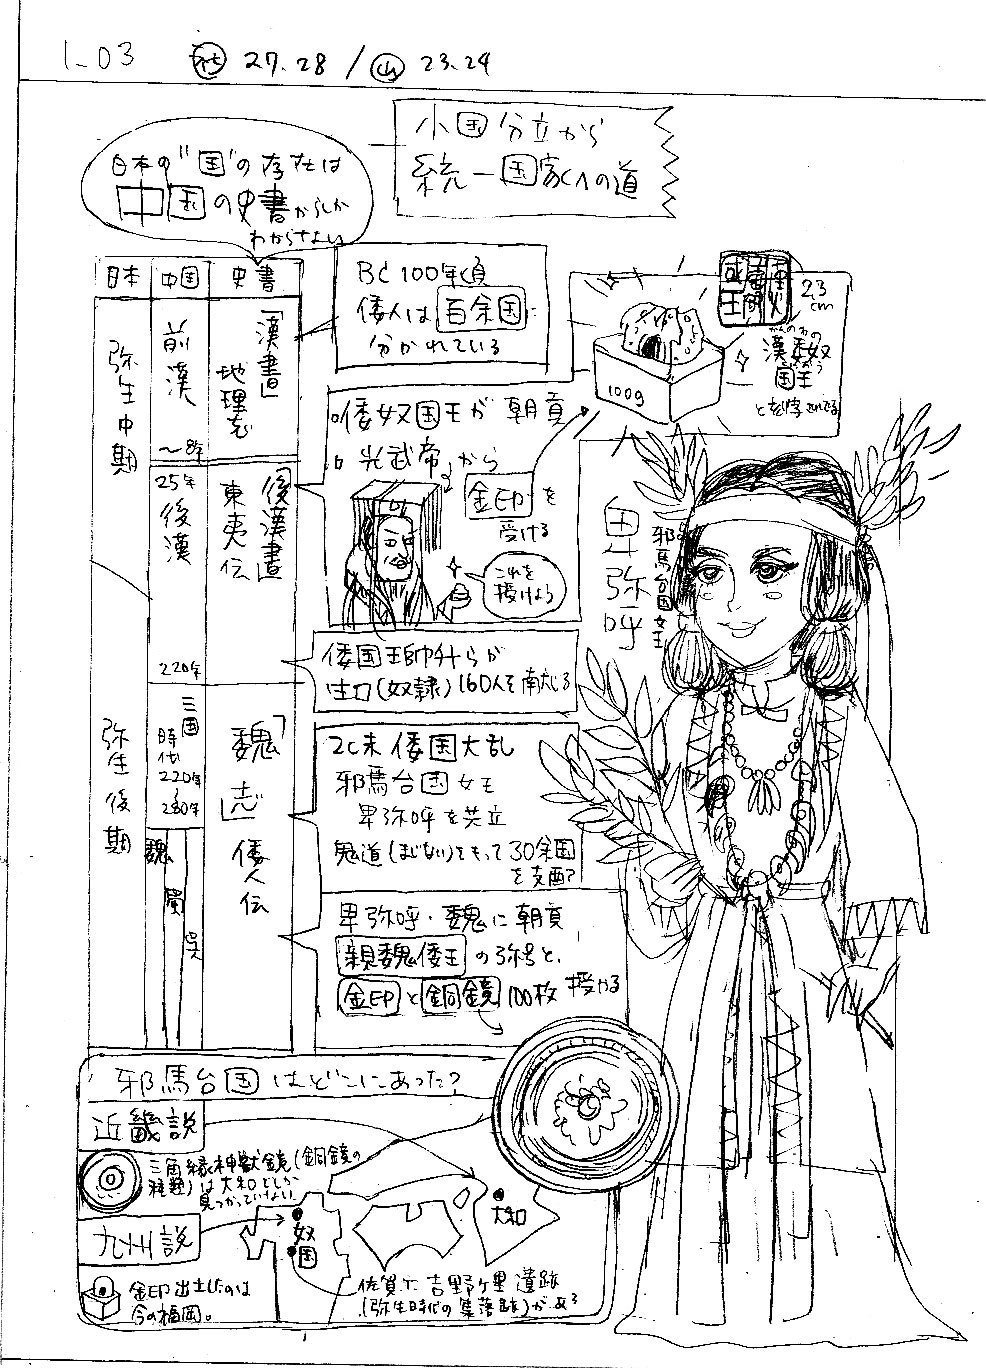 1-03 ㊓ 27.28 / ㊤ 23.24
小国分立から
統一国家への道
日本の"国"の存在は
中国の史書からしか
わからない
日本 中国 史書
弥生中期
前漢
〜8年
「漢書」
地理志
25年
後漢
220年
「後漢書」
東夷伝
弥生後期
三国
時代
220年
〜
280年
魏
蜀
呉
「魏志」
倭人伝
BC100年頃
倭人は百余国に
分かれている
倭奴国王が朝貢
光武帝から
金印を
受ける
これを
授けよう
100g
漢委奴
国王
2.3
cm
かんのわの
漢委奴
国王
と刻字されてる
倭国王帥升らが
生口(奴隷)160人を献じる
2C末 倭国大乱
邪馬台国女王
卑弥呼を共立
鬼道(まじない)をもって30余国
を支配
卑弥呼・魏に朝貢
親魏倭王の称号と、
金印と銅鏡100枚授かる
卑弥呼
邪馬台国女王
邪馬台国はどこにあった?
近畿説
三角縁神獣鏡(銅鏡の
種類)は大和でしか
見つかっていない
九州説
金印出土したのは
今の福岡。
奴
国
大和
佐賀に吉野ヶ里遺跡
(弥生時代の集落跡)がある